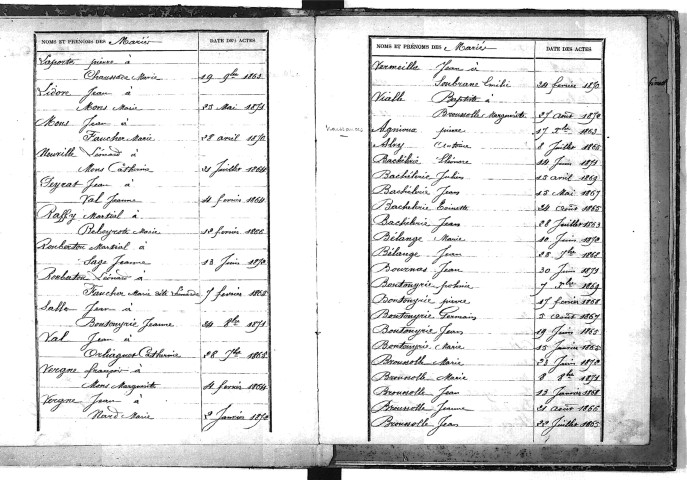 NOMS ET PRÉNOMS DES Mariés DATE DES ACTES
Laporte pierre à
Chaussade Marie 19 9bre 1863
Lidon Jean à
Mons Marie 23 Mai 1871
Mons Jean à
Faucher Marie 28 avril 1872
Neuville Léonard à
Mons Catherine 21 Juillet 1864
Peyrat Jean à
Val Jeanne 4 fevrier 1864
Raffy Martial à
Rebeyrotte Marie 10 fevrier 1866
Rouhaton Martial à
Sage Jeanne 13 Juin 1872
Rouhaton Léonard à
Faucher Marie dite Léonarde 7 fevrier 1865
Salle Jean à
Boutouyrie Jeanne 24 8bre 1871
Val Jean à
Orliaguet Catherine 28 7bre 1865
Vergne françois à
Mons Marguerite 4 fevrier 1864
Vergne Jean à
Nard Marie 2 Janvier 1872
NOMS ET PRÉNOMS DES Mariés DATE DES ACTES
Vermeille Jean à
Soubrane Emilie 24 fevrier 1870
Vialle Baptiste à
Brousolle Marguerite 27 août 1872
Naissances
Agnioux pierre 17 Xbre 1863
Alry Antoine 8 Juillet 1865
Bachèlerie Eléonore 24 Juin 1871
Bachelerie Julien 15 avril 1869
Bachelerie Jean 15 Mai 1867
Bachelerie Toinette 24 Août 1865
Bachelerie Jean 28 Juillet 1863
Bélange Marie 10 Juin 1872
Bélange Jean 25 7bre 1868
Bournas Jean 30 Juin 1871
Boutouyrie 7 Xbre 1869
Boutouyrie pierre 17 fevrier 1868
Boutouyrie Germain 5 août 1867
Boutouyrie Jean 19 Juin 1865
Boutouyrie Marie 15 Janvier 1865
Brousolle Marie 23 Juin 1872
Brousolle Marie 8 8bre 1871
Brousolle Jean 13 Janvier 1868
Brousolle Jeanne 21 août 1866
Brousolle Jean 22 Juillet 1865